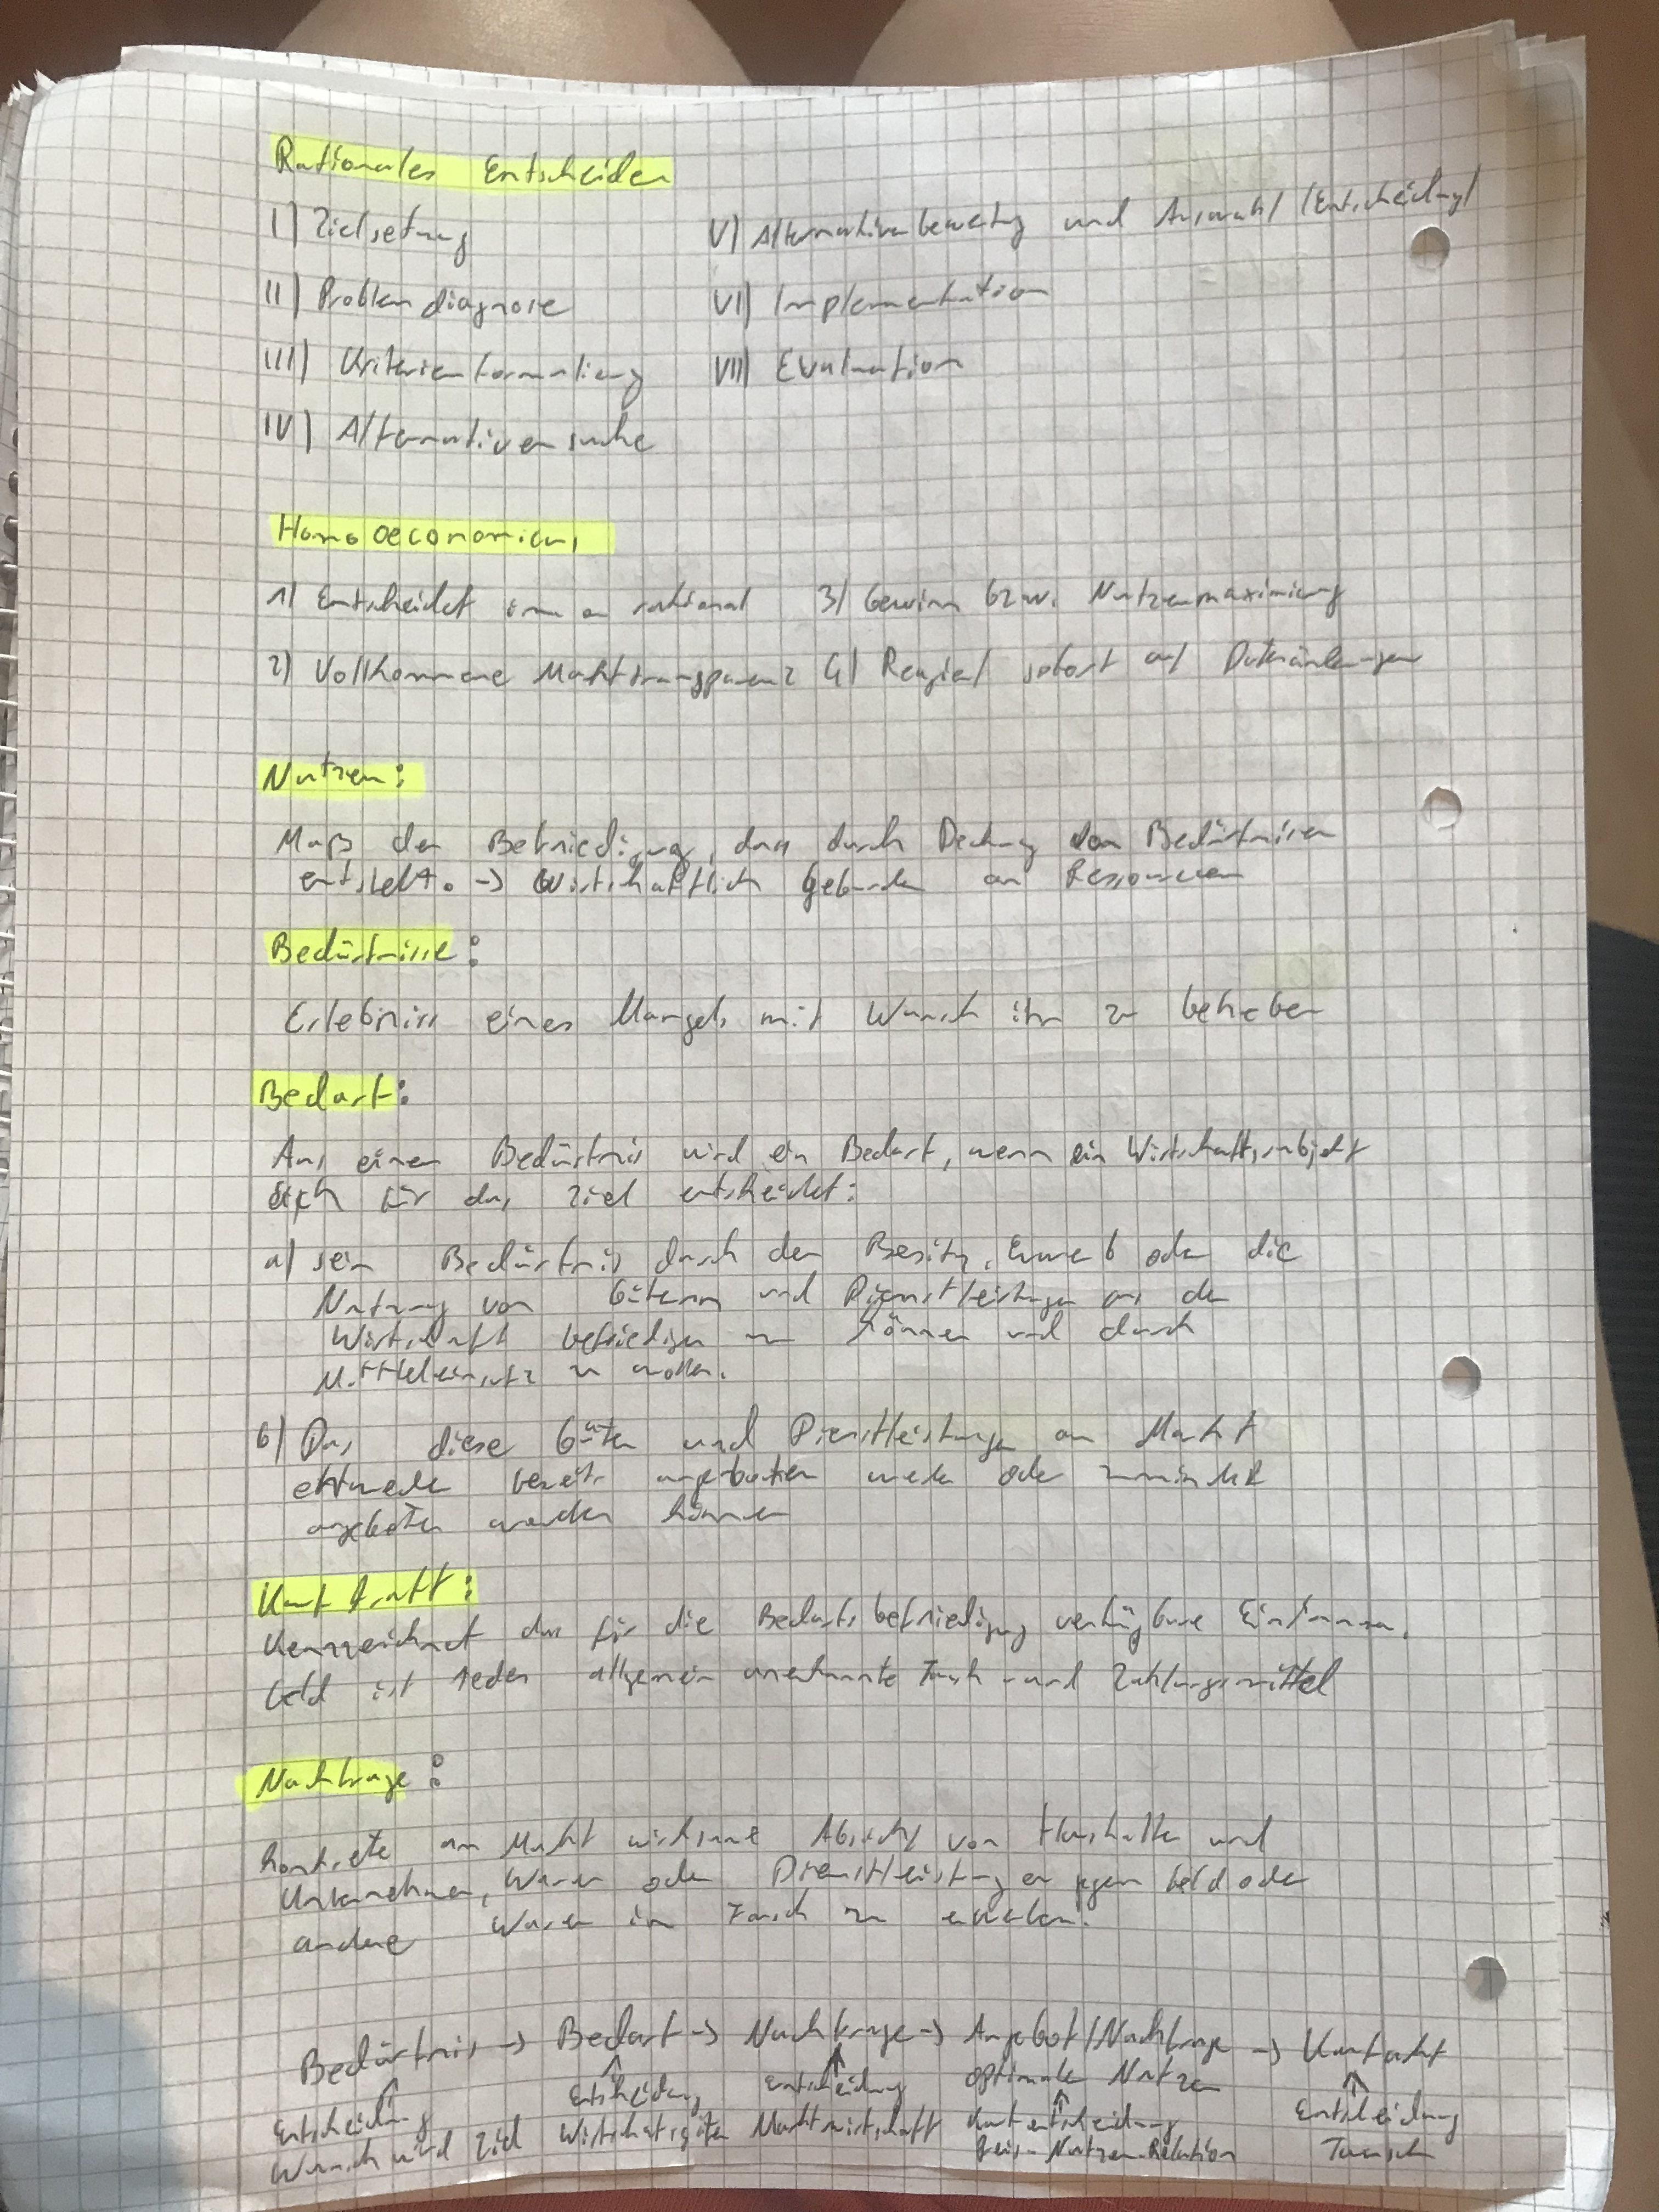 Rationales Entscheiden
I) Zielsetzung
V) Alternativenbewertung und Auswahl (Entscheidung)
II) Problemdiagnose
VI) Implementation
III) Kriterienformulierung
VII) Evaluation
IV) Alternativensuche
Homo oeconomicus
1) Entscheidet immer rational 3) Gewinn bzw. Nutzenmaximierung
2) Vollkommene Markttransparenz 4) Reagiert sofort auf Datenänderungen
Nutzen:
Maß der Befriedigung, das durch Deckung von Bedürfnissen
entsteht. -> Wirtschaftlich gebunden an Ressourcen
Bedürfnisse:
Erlebniss eines Mangels mit Wunsch ihn zu beheben
Bedarf:
Aus einem Bedürfnis wird ein Bedarf, wenn ein Wirtschaftssubjekt
sich für das Ziel entscheidet:
a) sein Bedürfnis durch den Besitz, Erwerb oder die
Nutzung von Gütern und Dienstleistungen aus der
Wirtschaft befriedigen zu können und durch
Mitteleinsatz zu wollen.
b) Das diese Güter und Dienstleistungen am Markt
entweder bereits angeboten werden oder zumindest
angeboten werden können
Kaufkraft:
Kennzeichnet das für die Bedarfsbefriedigung verfügbare Einkommen.
Geld ist jedes allgemein anerkannte Tausch- und Zahlungsmittel
Nachfrage:
Konkrete am Markt wirksame Absicht von Haushalten und
Unternehmen, Waren oder Dienstleistungen gegen Geld oder
andere Waren im Tausch zu erwerben.
Bedürfnis -> Bedarf -> Nachfrage -> Angebot/Nachfrage -> Kaufakt
Entscheidung Entscheidung optimaler Nutzen
Entscheidung Wirtschaftsgüter Marktwirtschaft Kaufentscheidung Entscheidung
Wunsch wird Ziel Preis-Nutzen-Relation Tausch